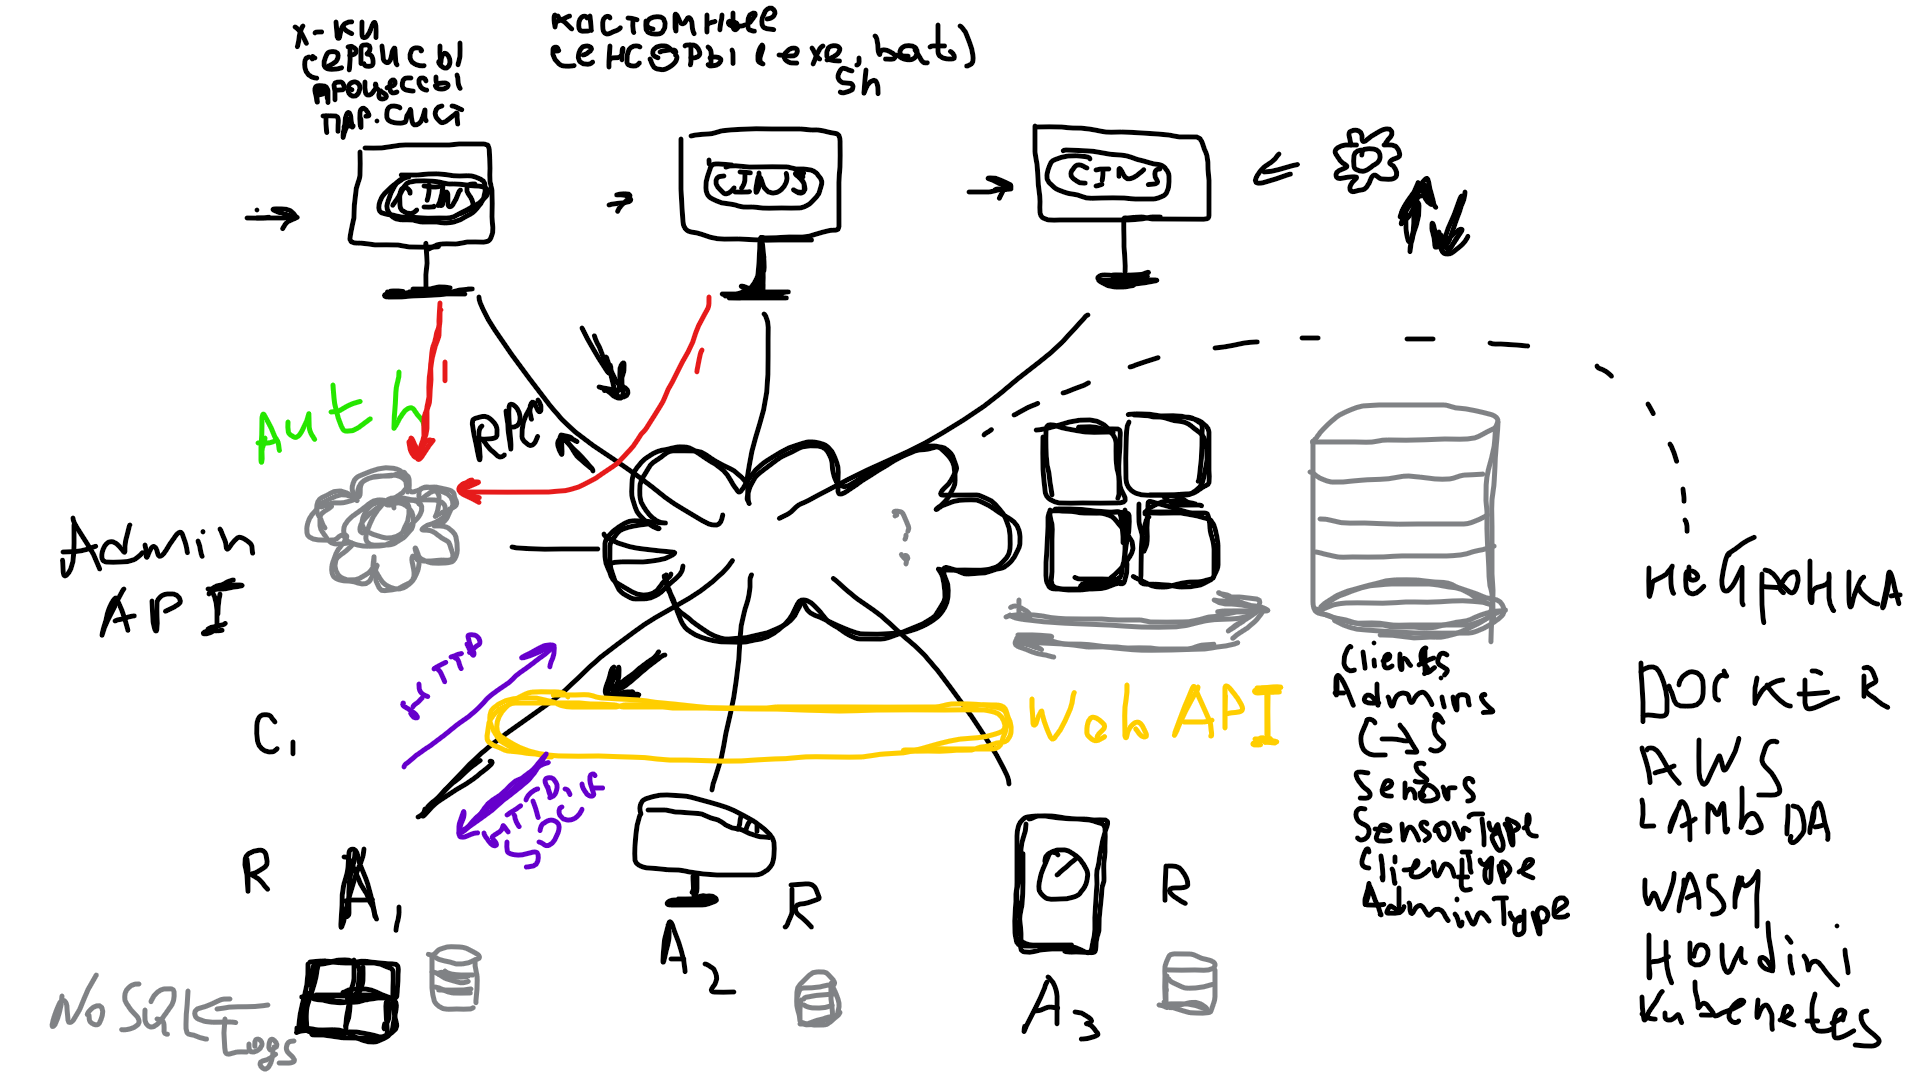 х-ки
сервисы
процессы
пар. сист
кастомные
сенсоры (exe, bat)
sh
CINS
CINS
CINS
Auth
RPC
Admin
API
?
HTTP
Web API
HTTP,
SOCK
C1
R
A1
R
A2
R
A3
NoSQL
Logs
Clients
Admins
C→S
Sensors
SensorType
ClientType
AdminType
нейронка
DOCKER
AWS
LAMbDA
WASM
Houdini
Kubenetes